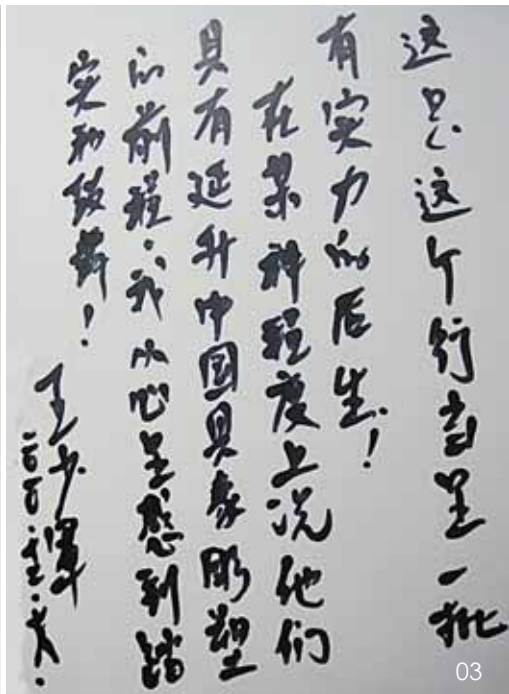 这是这个行当里一批
有实力的后生！
在某种程度上说他们
具有延升中国具象雕塑
的前程。我从心里感到踏
实和鼓舞！
王少军
03